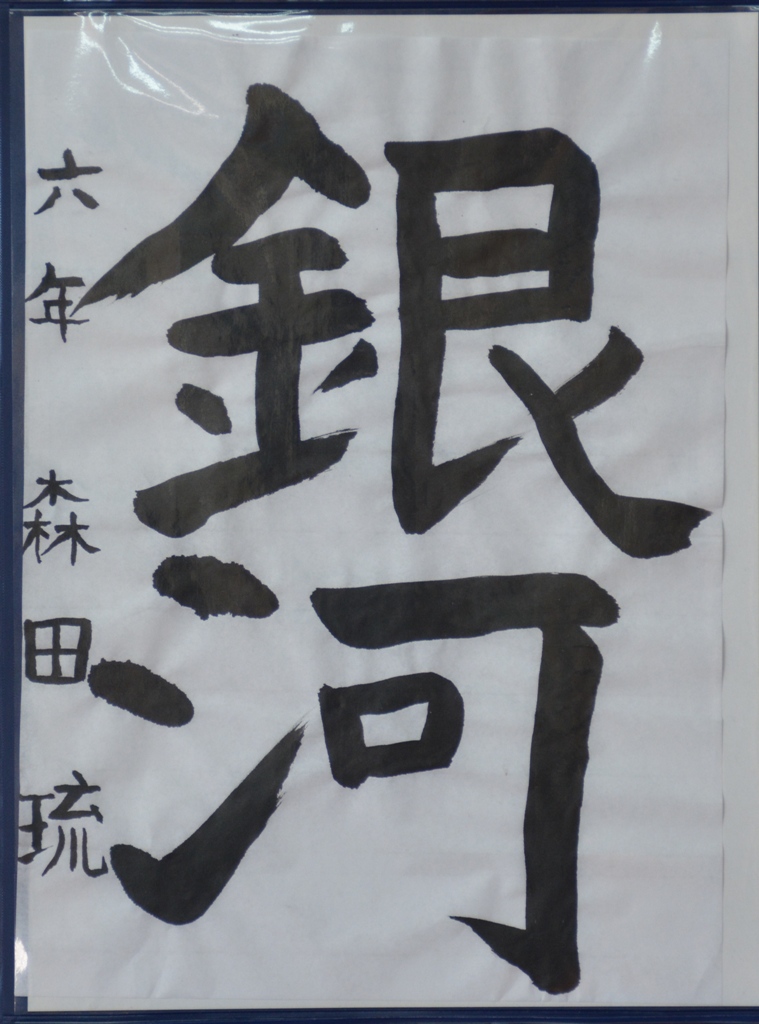 銀河
六年 森田琉